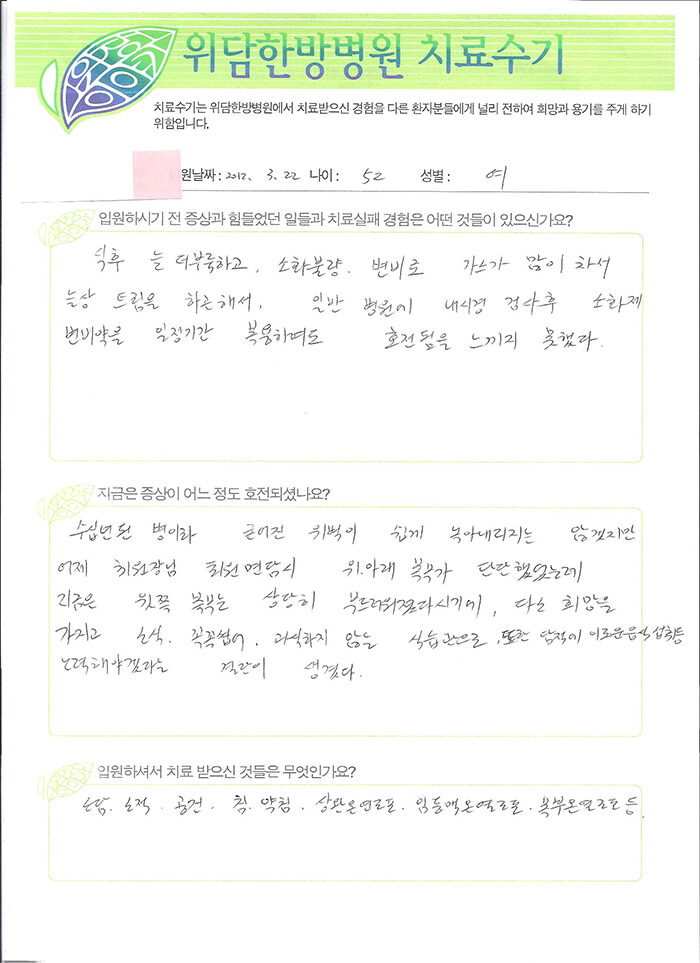 위담한방병원 치료수기
치료수기는 위담한방병원에서 치료받으신 경험을 다른 환자분들에게 널리 전하여 희망과 용기를 주게 하기
위함입니다.
원날짜 : 2012. 3. 22 나이 : 52 성별 : 여
입원하시기 전 증상과 힘들었던 일들과 치료실패 경험은 어떤 것들이 있으신가요?
식후 늘 더부룩하고, 소화불량. 변비로 가스가 많이 차서
늘상 트림을 하곤해서, 일반 병원에 내시경 검사후 소화제
변비약을 일정기간 복용하여도 호전됨을 느끼지 못했다.
지금은 증상이 어느 정도 호전되셨나요?
수십년된 병이라 굳어진 위벽이 쉽게 녹아내리지는 않겠지만
어제 최원장님 회원면담시 위.아래 복부가 단단했었는데
지금은 윗쪽 복부는 상당히 부드러워졌다시기에, 다소 희망을
가지고 소식. 꼭꼭씹어, 과식하지 않는 식습관으로, 또한 담적에 이로운음식 섭취등
노력해야겠다는 결단이 생겼다.
입원하셔서 치료 받으신 것들은 무엇인가요?
소담. 소적. 공건. 침. 약침. 상완온열도포. 임동맥온열도포. 복부온열도포 등